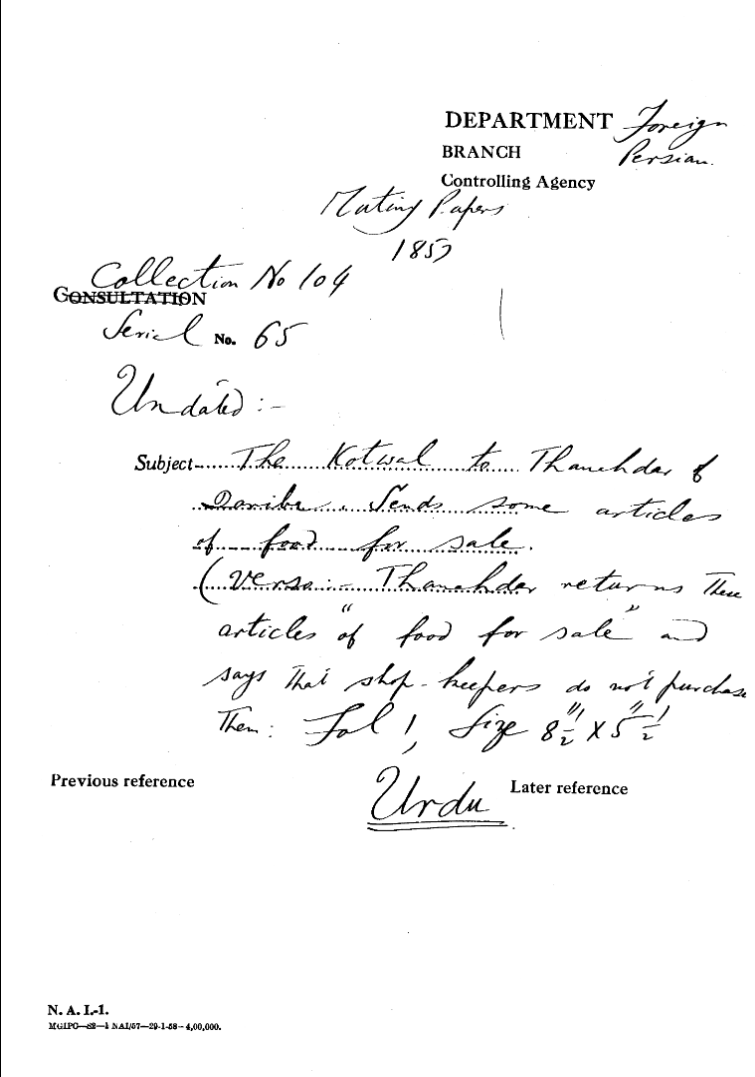 DEPARTMENT Foreign
BRANCH Persian.
Controlling Agency
Mutiny Papers
1857
Collection No 104
CONSULTATION
Serial No. 65
Undated :-
Subject The Kotwal to Thanehdar of
Dariba. Sends some articles
of food for sale.
(Verso:- Thanehdar returns these
articles "of food for sale" and
says that shop-keepers do not purchase
them: Fol 1, Size 8 1/2" X 5 1/2"
Previous reference
Urdu
Later reference
N. A. I.-1.
MGIPC—S2—1 NAI/57—29-1-58—4,00,000.